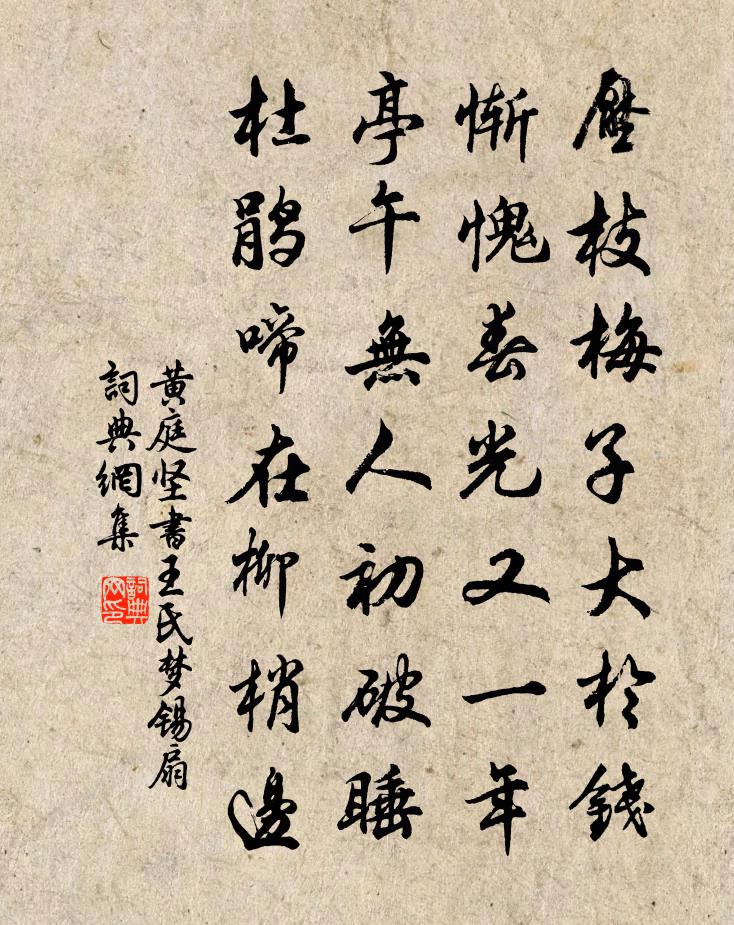 壓枝梅子大於錢
慚愧春光又一年
亭午無人初破睡
杜鵑啼在柳梢邊
黄庭坚書王氏梦锡扇
詞典網集
詞典
网印